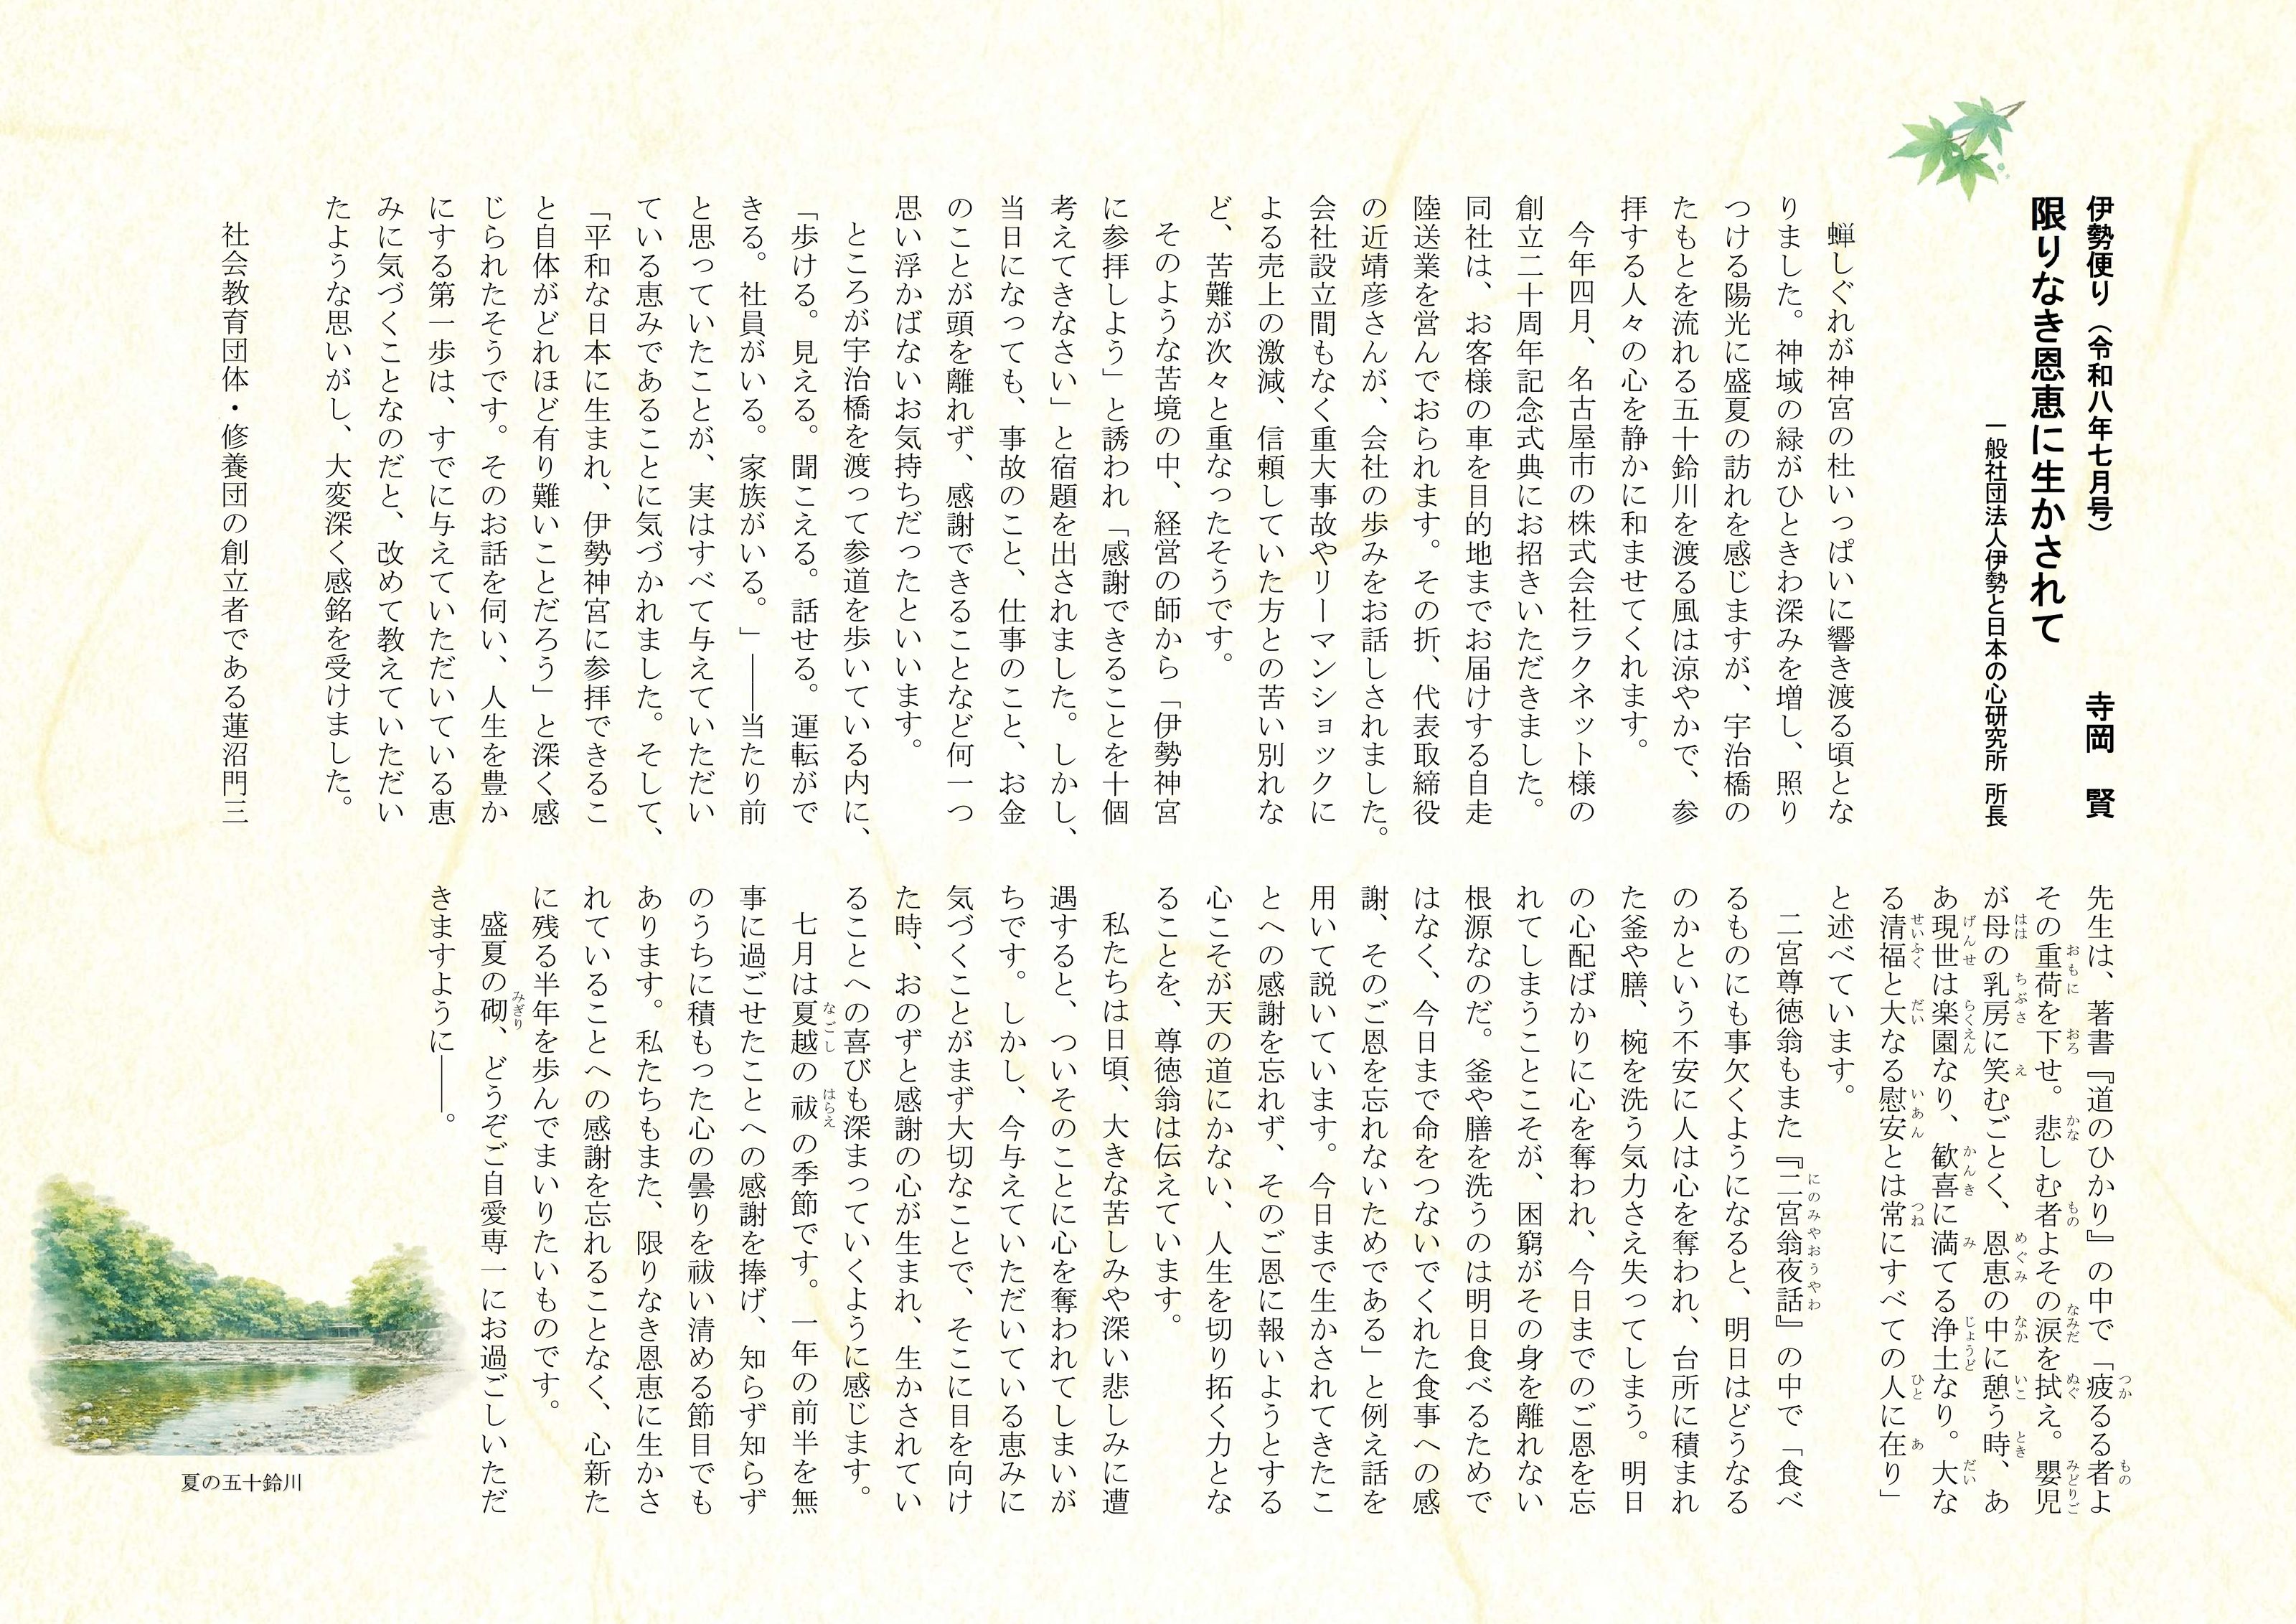 伊勢便り（令和八年七月号）　寺岡　賢
限りなき恩恵に生かされて
一般社団法人伊勢と日本の心研究所 所長
蝉しぐれが神宮の杜いっぱいに響き渡る頃とな
りました。神域の緑がひときわ深みを増し、照り
つける陽光に盛夏の訪れを感じますが、宇治橋の
たもとを流れる五十鈴川を渡る風は涼やかで、参
拝する人々の心を静かに和ませてくれます。
今年四月、名古屋市の株式会社ラクネット様の
創立二十周年記念式典にお招きいただきました。
同社は、お客様の車を目的地までお届けする自走
陸送業を営んでおられます。その折、代表取締役
の近靖彦さんが、会社の歩みをお話しされました。
会社設立間もなく重大事故やリーマンショックに
よる売上の激減、信頼していた方との苦い別れな
ど、苦難が次々と重なったそうです。
そのような苦境の中、経営の師から「伊勢神宮
に参拝しよう」と誘われ「感謝できることを十個
考えてきなさい」と宿題を出されました。しかし、
当日になっても、事故のこと、仕事のこと、お金
のことが頭を離れず、感謝できることなど何一つ
思い浮かばないお気持ちだったといいます。
ところが宇治橋を渡って参道を歩いている内に、
「歩ける。見える。聞こえる。話せる。運転がで
きる。社員がいる。家族がいる。」――当たり前
と思っていたことが、実はすべて与えていただい
ている恵みであることに気づかれました。そして、
「平和な日本に生まれ、伊勢神宮に参拝できるこ
と自体がどれほど有り難いことだろう」と深く感
じられたそうです。そのお話を伺い、人生を豊か
にする第一歩は、すでに与えていただいている恵
みに気づくことなのだと、改めて教えていただい
たような思いがし、大変深く感銘を受けました。
社会教育団体・修養団の創立者である蓮沼門三
先生は、著書『道のひかり』の中で「疲るる者よ
その重荷を下せ。悲しむ者よその涙を拭え。嬰児
が母の乳房に笑むごとく、恩恵の中に憩う時、あ
あ現世は楽園なり、歓喜に満てる浄土なり。大な
る清福と大なる慰安とは常にすべての人に在り」
と述べています。
二宮尊徳翁もまた『二宮翁夜話』の中で「食べ
るものにも事欠くようになると、明日はどうなる
のかという不安に人は心を奪われ、台所に積まれ
た釜や膳、椀を洗う気力さえ失ってしまう。明日
の心配ばかりに心を奪われ、今日までのご恩を忘
れてしまうことこそが、困窮がその身を離れない
根源なのだ。釜や膳を洗うのは明日食べるためで
はなく、今日まで命をつないでくれた食事への感
謝、そのご恩を忘れないためである」と例え話を
用いて説いています。今日まで生かされてきたこ
とへの感謝を忘れず、そのご恩に報いようとする
心こそが天の道にかない、人生を切り拓く力とな
ることを、尊徳翁は伝えています。
私たちは日頃、大きな苦しみや深い悲しみに遭
遇すると、ついそのことに心を奪われてしまいが
ちです。しかし、今与えていただいている恵みに
気づくことがまず大切なことで、そこに目を向け
た時、おのずと感謝の心が生まれ、生かされてい
ることへの喜びも深まっていくように感じます。
七月は夏越の祓の季節です。一年の前半を無
事に過ごせたことへの感謝を捧げ、知らず知らず
のうちに積もった心の曇りを祓い清める節目でも
あります。私たちもまた、限りなき恩恵に生かさ
れていることへの感謝を忘れることなく、心新た
に残る半年を歩んでまいりたいものです。
盛夏の砌、どうぞご自愛専一にお過ごしいただ
きますように――。
夏の五十鈴川